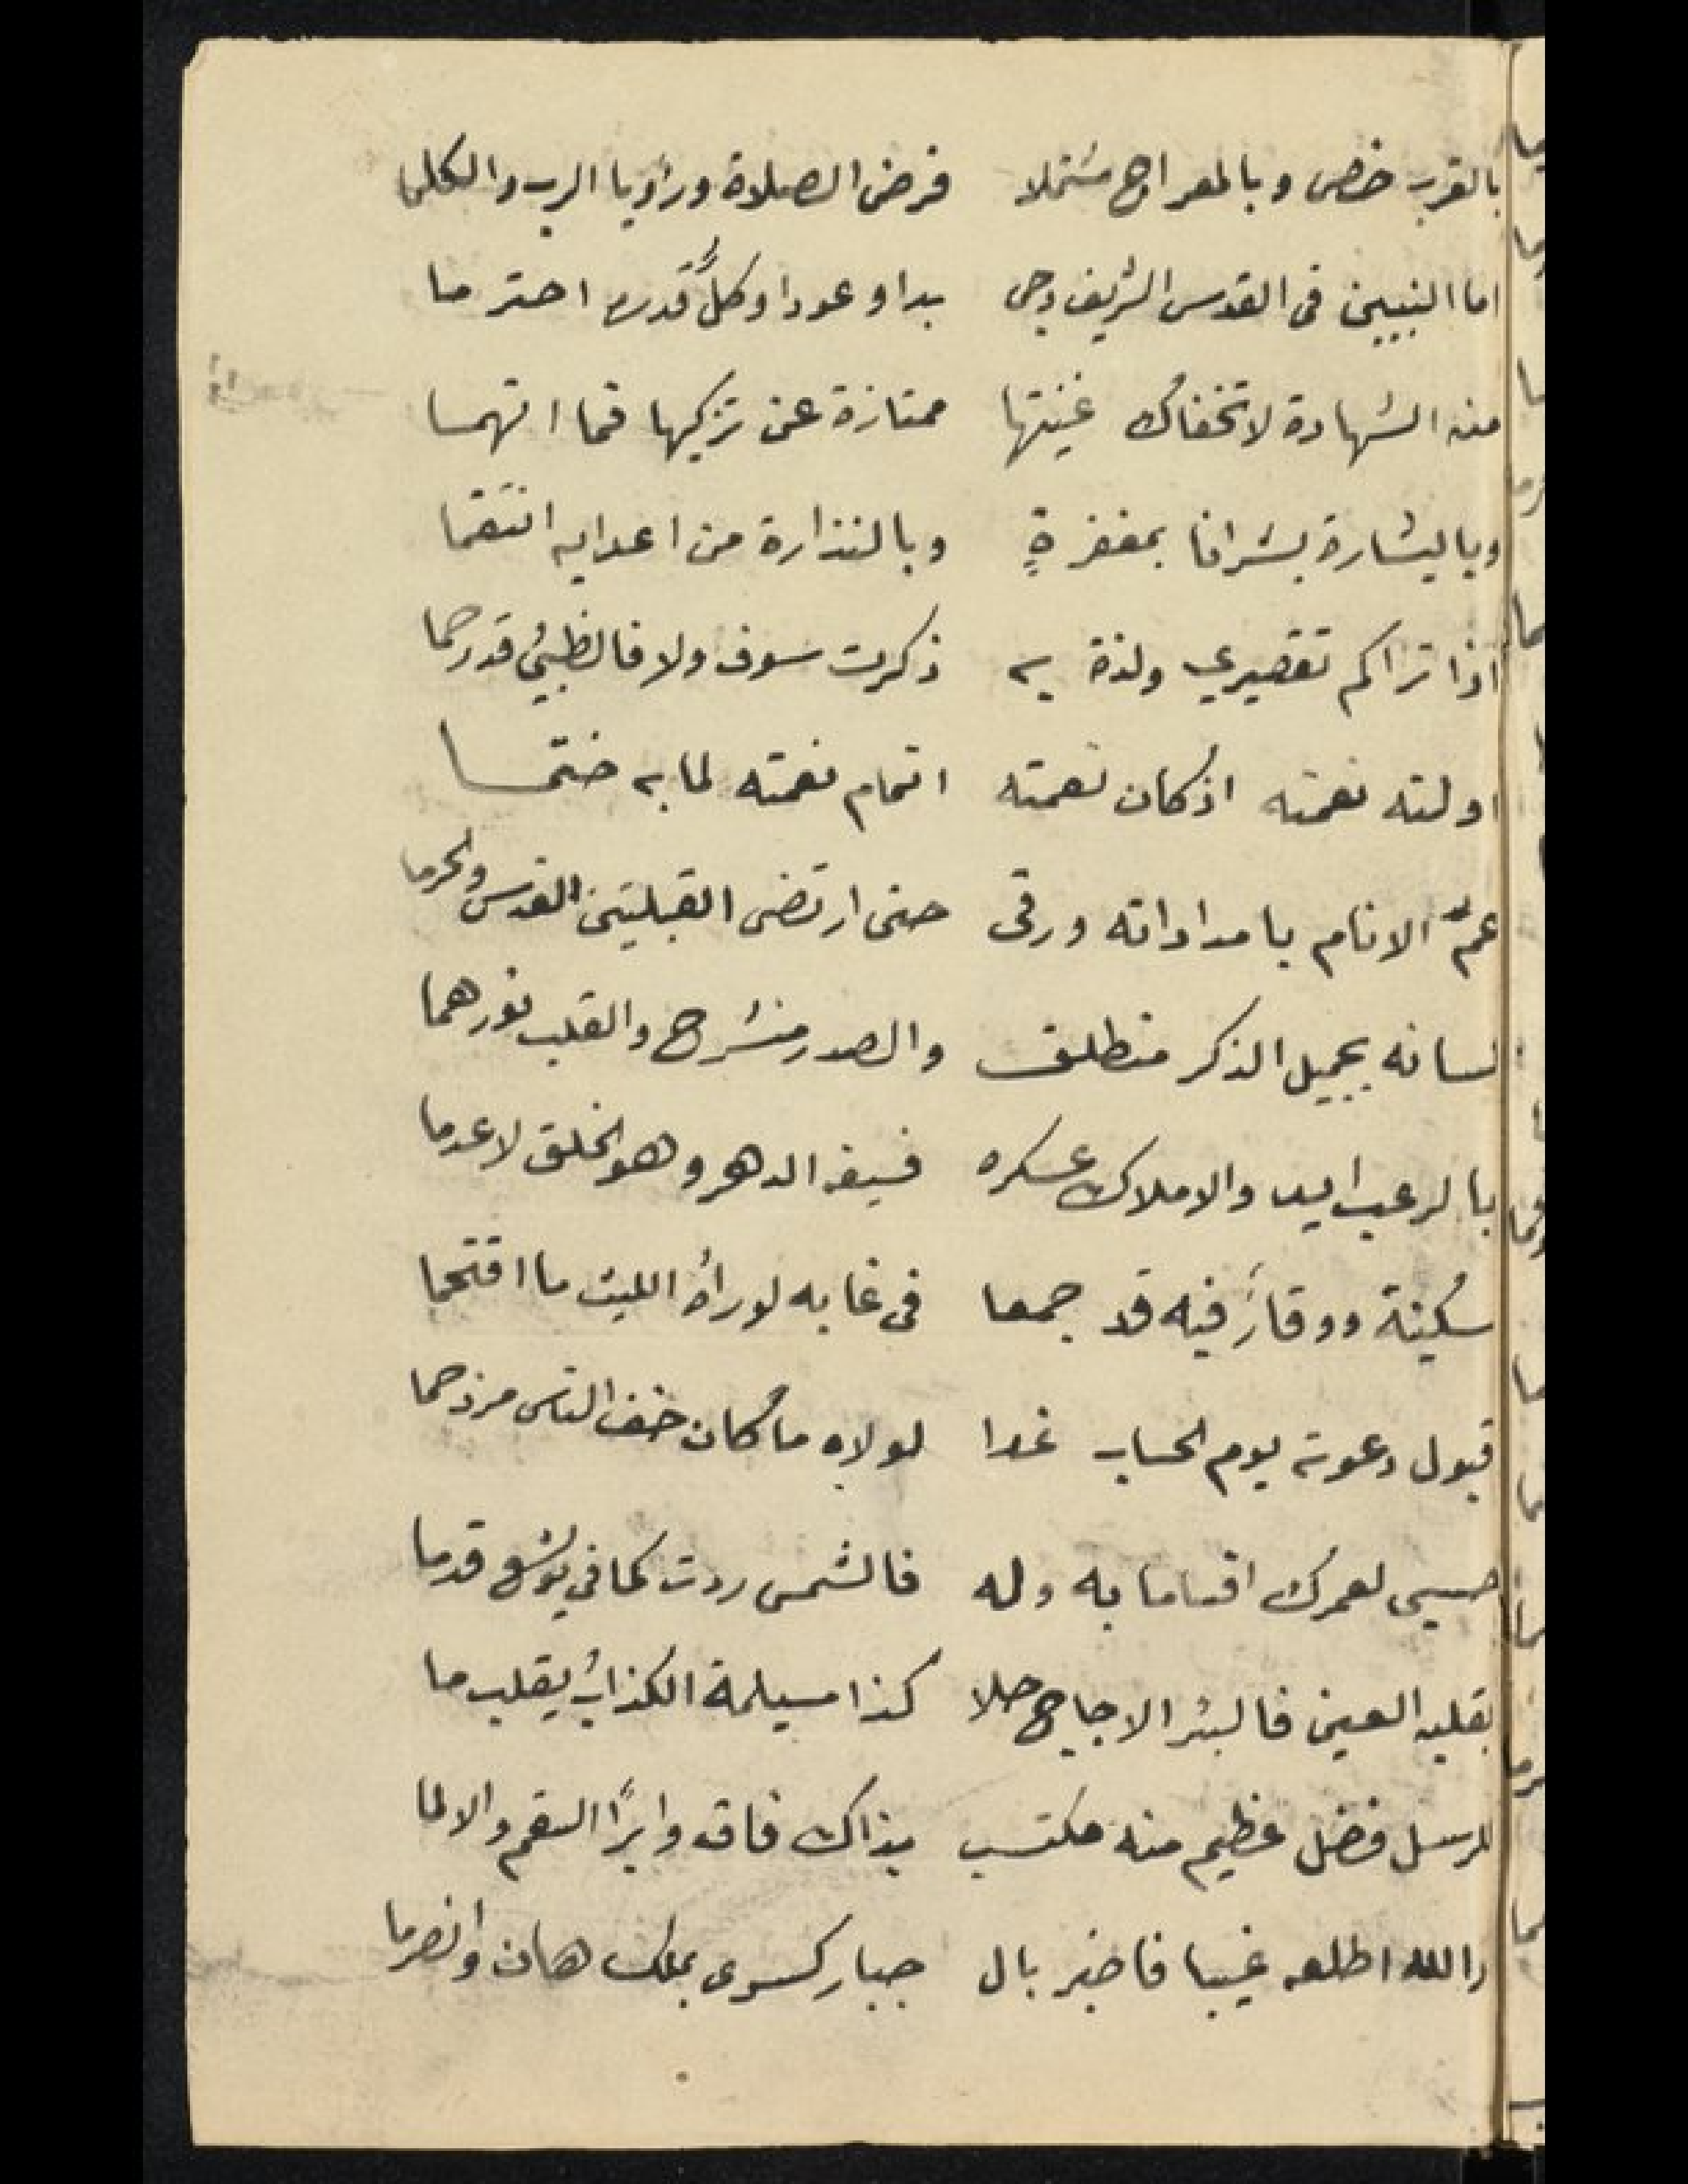 بالقرب خص وبالمعراج مشتملا فرض الصلاة ورأويا الرب والكلما
اما النبيين في القدس الشريف وحى بداو عودا وكلٌّ قدره احترما
منه الشهادة لا تخفاك غنيتها ممتازة عن تزكيها فما اتهما
وبالبشارة بشرانا بمغفرةٍ وبالنذارة من اعدايه انتقما
اذا تراكم تقصيري ولذة به ذكرت سوف ولا فالظبيُ قدرحما
اولته نعمته اذ كان نعمته اتمام نعمته لما به ختما
عمّ الانام بامداداته ورقى حتى ارتضى القبلتين القدس والحرما
لسانه بجميل الذكر منطلق والصدر منشرح والقلب نورهما
بالرعب ايد والاملاك عسكره فسيفه الدهر وهو الخلق لاعدما
سكينة ووقارَ فيه قد جمعا في غابه لو رأه الليث ما اقتحما
قبول دعوته يوم الحساب غدا لولاه ما كان خف الناس مزدحما
حسبي لعمرك اقساما به وله فالشمس ردت كما في يوشع قدما
بقلبه العين فالبئر الاجاج حلا كذا مسيلمة الكذاب يقلب ما
لمرسل فضل عظيم منه مكتسب بذاك فاقه وابرًا السقم والالما
والله اطلعه غيبا فاخبر بال جبار كسرى بملك هان وانصرما